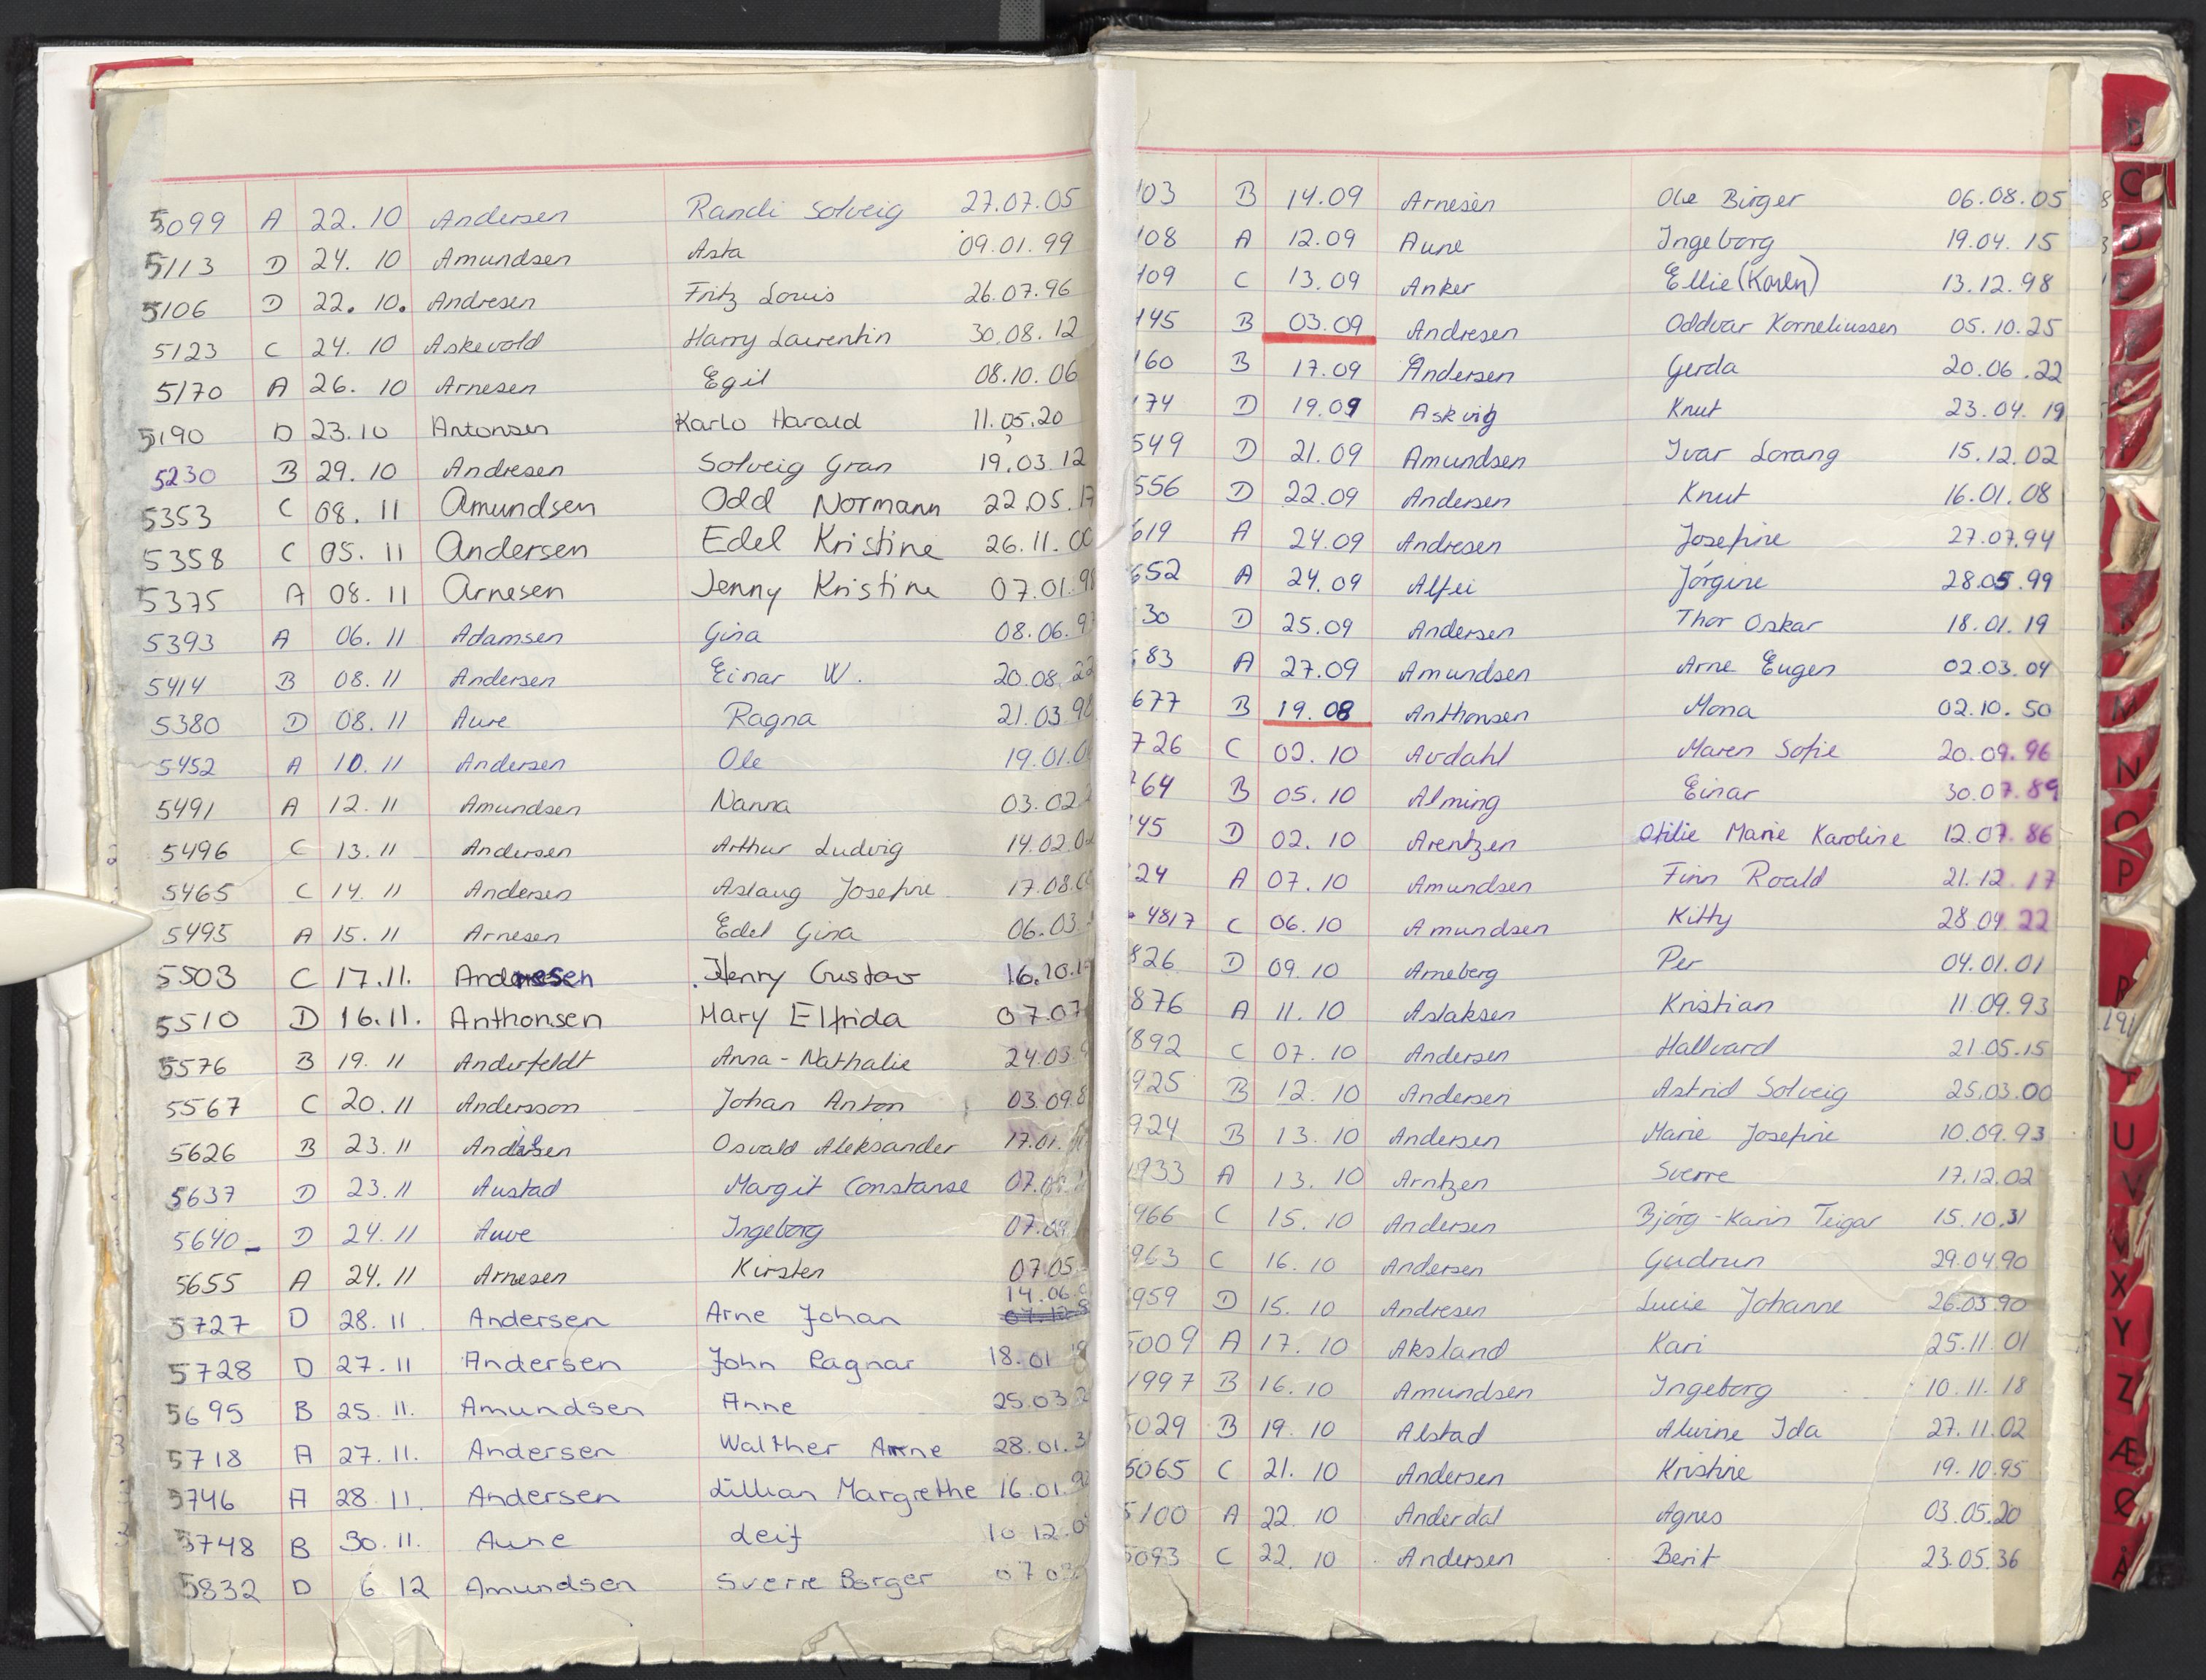 5099 A 22.10 Andersen Randi Solveig 27.07.05
5113 D 24.10 Amundsen Asta 09.01.99
5106 D 22.10. Andresen Fritz Louis 26.07.96
5123 C 24.10 Askevold Harry Laurentin 30.08.12
5170 A 26.10 Arnesen Egil 08.10.06
5190 D 23.10 Antonsen Karlo Harald 11.05.20
5230 B 29.10 Andresen Solveig Gran 19.03.12
5353 C 08.11 Amundsen Odd Normann 22.05.17
5358 C 05.11 Andersen Edel Kristine 26.11.00
5375 A 08.11 Arnesen Jenny Kristine 07.01.98
5393 A 06.11 Adamsen Gina 08.06.9
5414 B 08.11 Andersen Einar W. 20.08.22
5380 D 08.11 Aure Ragna 21.03.98
5452 A 10.11 Andersen Ole 19.01.0
5491 A 12.11 Amundsen Nanna 03.02
5496 C 13.11 Andersen Arthur Ludvig 14.02.0
5465 C 14.11 Andersen Aslaug Josefine 17.08.
5495 A 15.11 Arnesen Edel Gina 06.03
5503 C 17.11. Andresen Henry Gustav 16.10.1
5510 D 16.11. Anthonsen Mary Elfrida 07.07
5576 B 19.11 Anderfeldt Anna-Nathalie 24.03.
5567 C 20.11 Andersson Johan Anton 03.09.8
5626 B 23.11 Osvald Aleksander 17.01.
5637 D 23.11 Austad Margit Constanse 07.
5640 D 24.11 Ingeborg 07.04
5655 A 24.11 Arnesen Kirsten 07.05
14.06
5727 D 28.11 Andersen Arne Johan
5728 D 27.11 Andersen John Ragnar 18.01
5695 B 25.11. Amundsen Anne 25.03
5718 A 27.11. Andersen Walther Arne 28.01.3
5746 A 28.11. Andersen Lillian Margrethe 16.01.9
5748 B 30.11. Aune Leif 10.12.0
5832 D 6 12 Amundsen Sverre Borger 07 0
103 B 14.09 Arnesen Ole Birger 06.08.05
108 A 12.09 Aune Ingeborg 19.04.15
109 C 13.09 Anker Ellie (Karen) 13.12.98
145 B 03.09 Andresen Oddvar Korneliussen 05.10.25
160 B 17.09 Andersen Gerda 20.06.22
174 D 19.09 Askvig Knut 23.04.19
549 D 21.09 Amundsen Ivar Lorang 15.12.02
556 D 22.09 Andersen Knut 16.01.08
619 A 24.09 Andresen Josefine 27.07.94
652 A 24.09 Alfei Jørgine 28.05.99
30 D 25.09 Andersen Thor Oskar 18.01.19
83 A 27.09 Amundsen Arne Eugen 02.03.04
677 B 19.08 Anthonsen Mona 02.10.50
726 C 02.10 Avdahl Maren Sofie 20.09.96
764 B 05.10 Alming Einar 30.07.89
45 D 02.10 Arentzen Otilie Marie Karoline 12.07.86
24 A 07.10 Amundsen Finn Roald 21.12.17
4817 C 06.10 Amundsen Kitty 28.04.22
826 D 09.10 Arneberg Per 04.01.01
876 A 11.10 Aslaksen Kristian 11.09.93
892 C 07.10 Andersen Hallvard 21.05.15
925 B 12.10 Andersen Astrid Solveig 25.03.00
924 B 13.10 Andersen Marie Josefine 10.09.93
933 A 13.10 Arntzen Sverre 17.12.02
966 C 15.10 Andersen Bjørg-Karin Teigar 15.10.31
963 C 16.10 Andersen Gudrun 29.04.90
959 D 15.10 Andresen Lucie Johanne 26.03.90
5009 A 17.10 Aksland Kari 25.11.01
1997 B 16.10 Amundsen Ingeborg 10.11.18
5029 B 19.10 Alstad Alvine Ida 27.11.02
5065 C 21.10 Andersen Kristine 19.10.95
5100 A 22.10 Anderdal Agnes 03.05.20
5093 C 22.10 Andersen Berit 23.05.36
C
D
M
N
O
P
R
U
V
X
Y
Z
Æ
Ø
Å